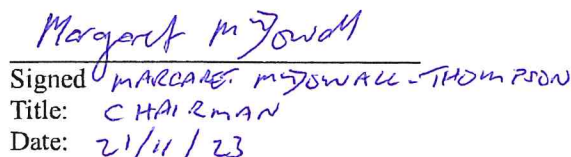 Margaret McDowall
Signed MARGARET McDOWALL-THOMPSON
Title: CHAIRMAN
Date: 21/11/23